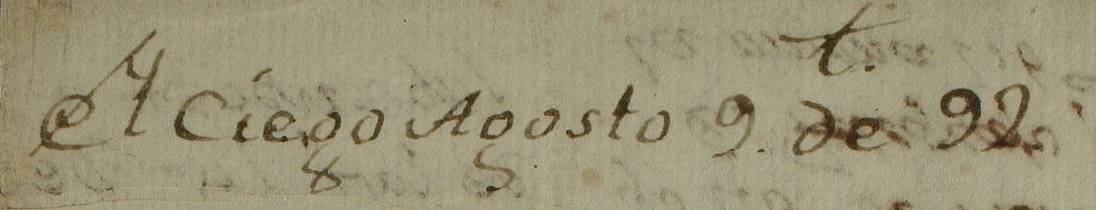 t.
El Ciego Agosto 9. de 92.